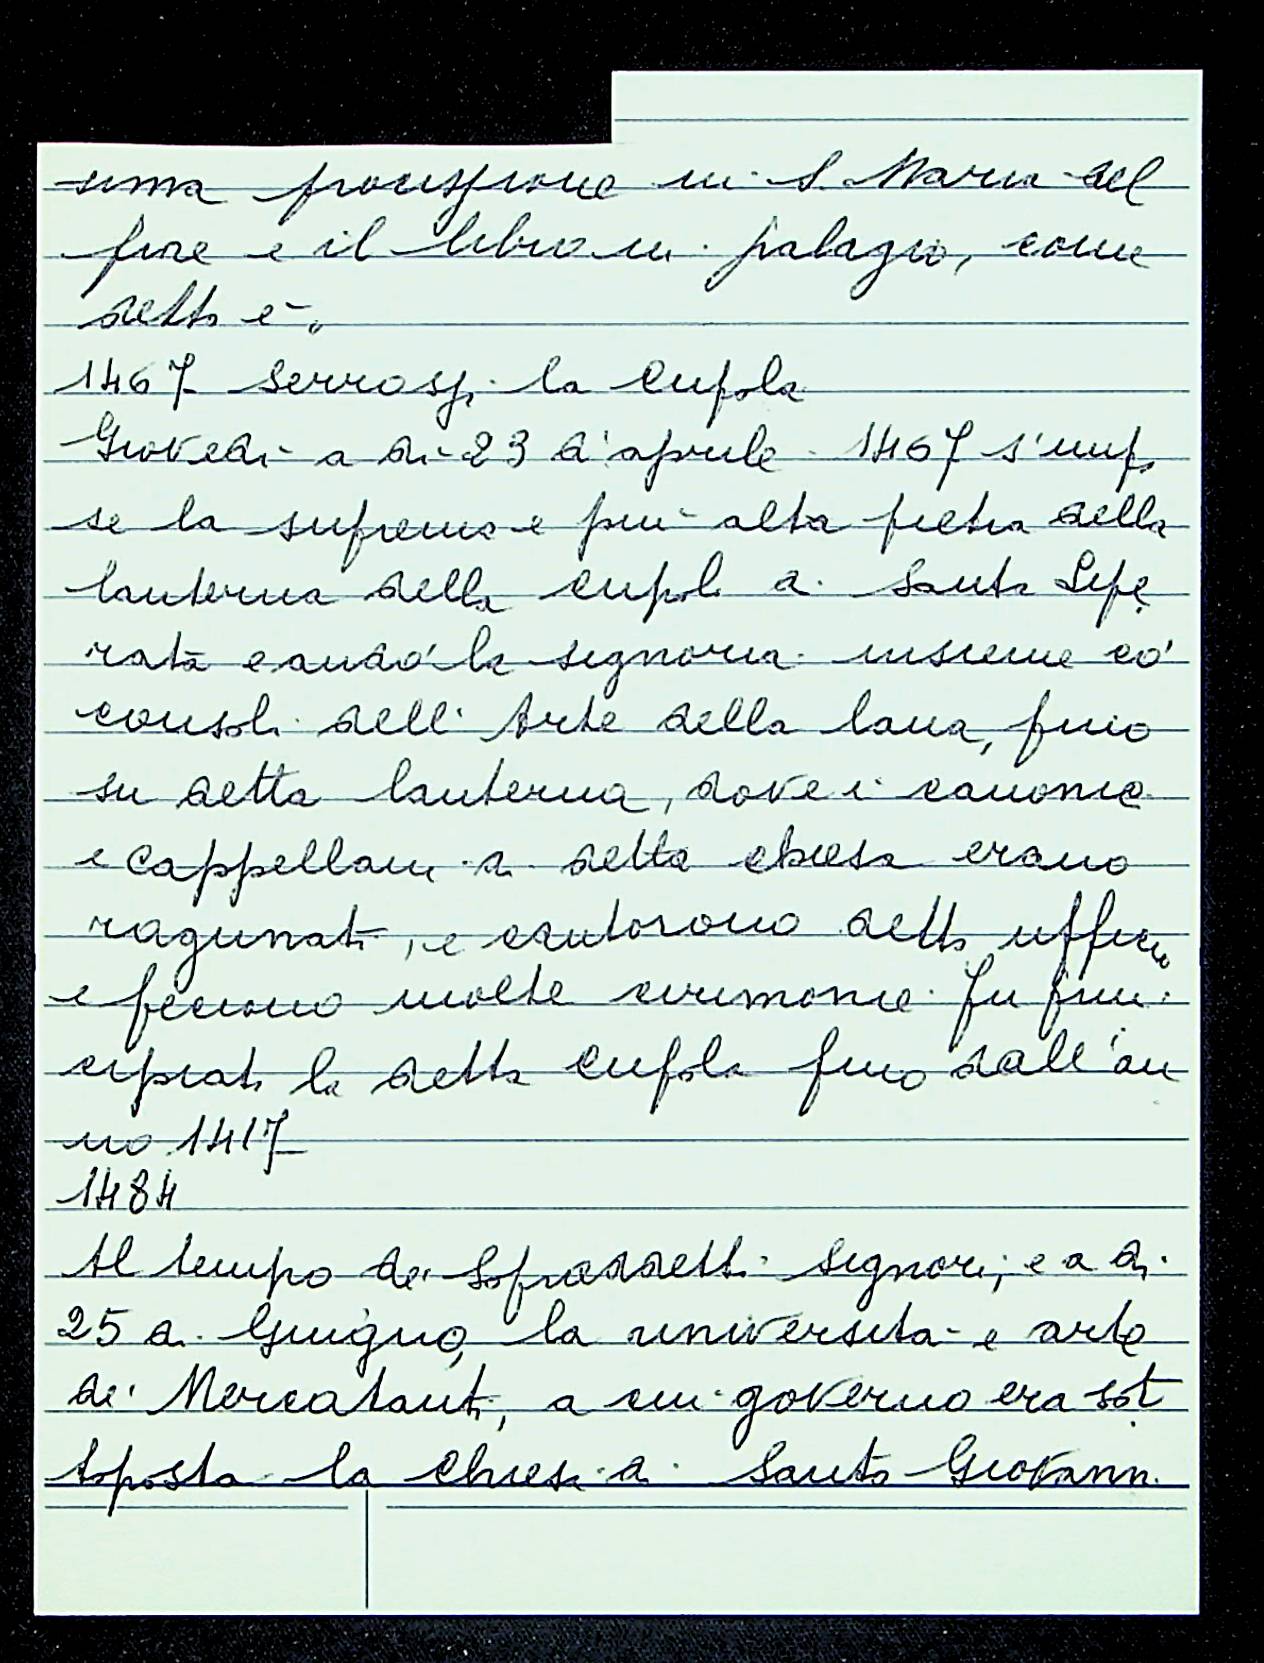 sima processione in S. Maria del
fiore e il libro in palagio, come
detto è.
1467 Serrossi la Cupola
Giovedì a dì 23 d'aprile 1467 s'impo
se la suprema e più alta pietra della
lanterna della cupola di Santa Lipe
rata e andò la signoria insieme co'
consoli dell'Arte della lana, fino
su detta lanterna, dove i canonici
e cappellani di detta chiesa erano
ragunati, e cantorono detto ufficio
e feciono molte cirimonie. Fu prin
cipiata la detta Cupola fino dall'an
no 1417
1484
Al tempo de' Sopraddetti Signori; e a dì
25 di Giugno, la università e arte
de' Mercatanti, a cui governo era sot
toposta la Chiesa di Santo Giovanni